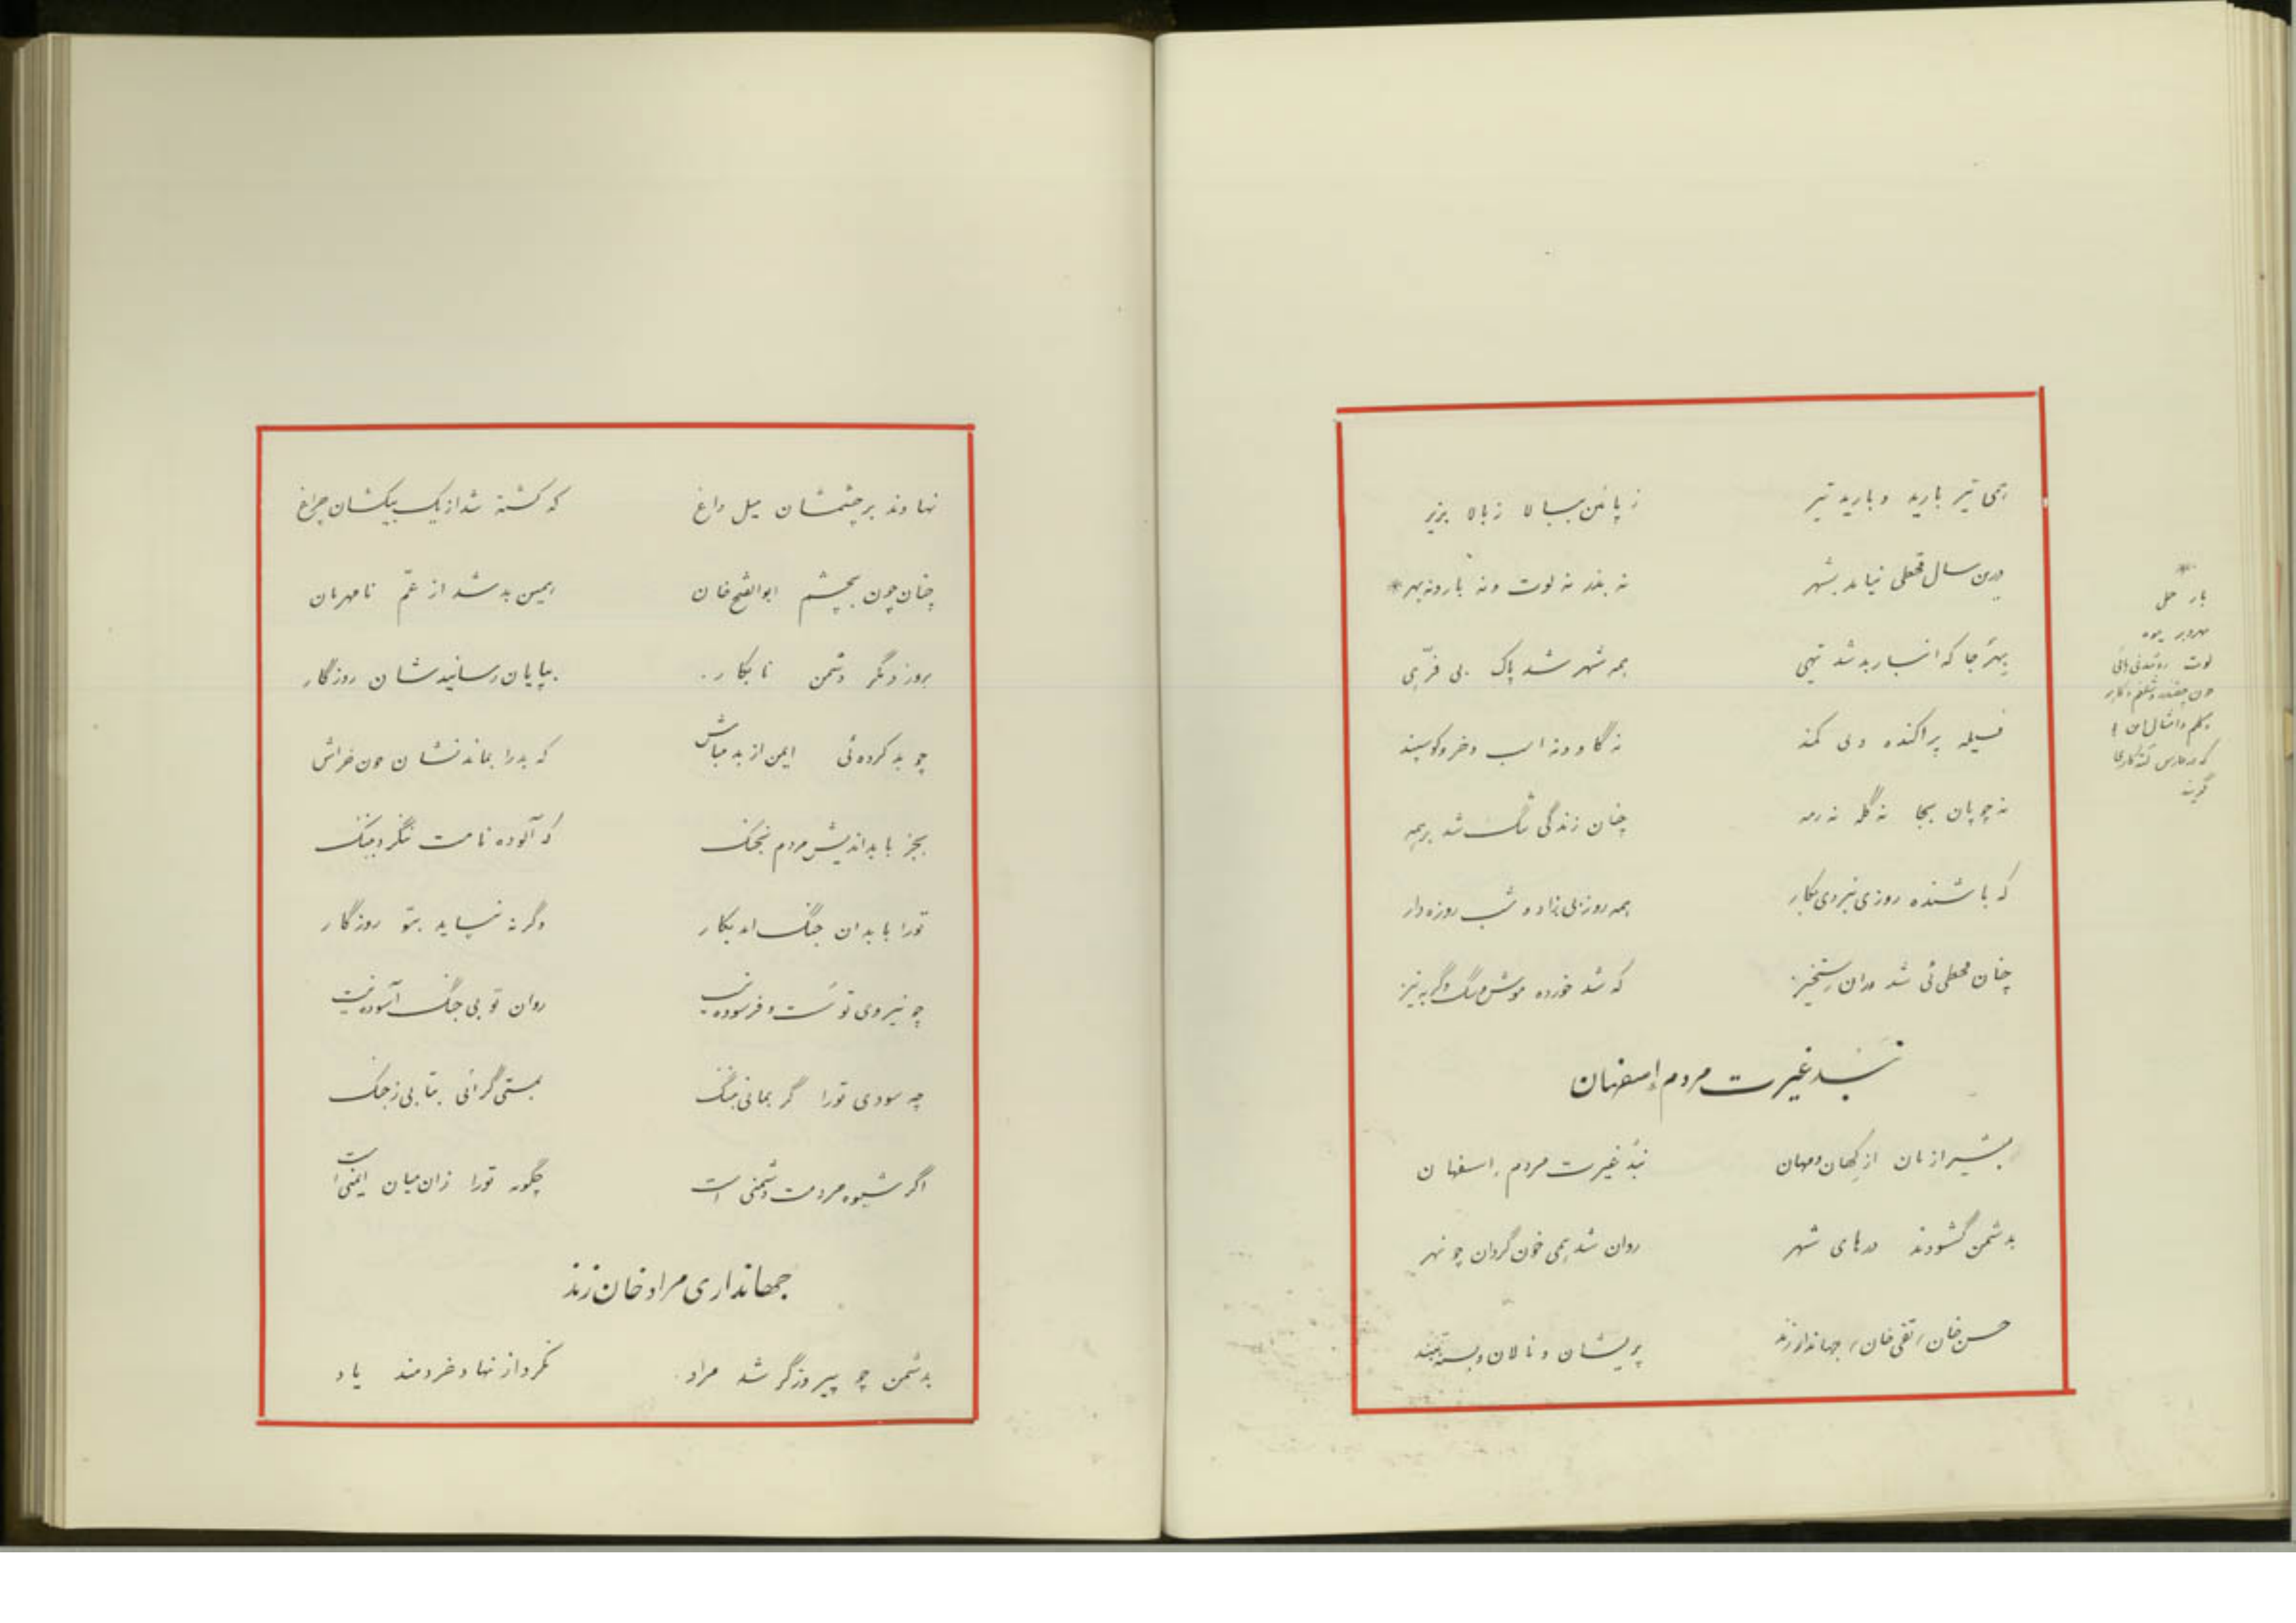 همی تیر بارید و بارید تیر ز پائین ببالا ز بالا بزیر
درین سال قحطی نیامد بشهر نه بذر نه لوت و نه بار و نه بهر*
بهر جا که انبار بد شد تهی همه شهر شد پاک بی فرّهی
فسیله پراکنده و بی کمند نه گاو و نه اسب و خر و گوسپند
نه چوپان بجا نه گله نه رمه چنان زندگی تنگ شد بر همه
که باشنده روزی نبردی بکار همه روز بی زاد و شب روزه دار
چنان قحطی ئی شد در آن رستخیز که شد خورده موش و سگ و گربه نیز
نبد غیرت مردم اسفهان
بشیرازیان از کهان و مهان نبد غیرت مردم اسفهان
بدشمن گشودند درهای شهر روان شد همی خون گردان چو نهر
حسن خان، تقی خان، جهاندار زند پریشان و نالان و بسته ببند
*
بار
میوه
لوت
چون چغندر و شلغم و
کلم و امثال آن
که در فارس
گویند
نهادند بر چشمشان میل داغ که کشته شد از یک بیکشان چراغ
چنان چون بچشم ابوالفتح خان همین بد شد از عمّ نامهربان
بروز دگر دشمن نابکار بپایان رسانیدشان روزگار
چو بد کرده ئی ایمن از بد مباش که بد را بماند نشان چون خراش
بجز با بداندیش مردم نجنگ که آلوده نامت نگردد بننگ
تو را با بدان جنگ اید بکار وگرنه نپاید بتو روزگار
چو نیروی تو سست و فرسوده نیست روان تو بی جنگ آسوده نیست
چه سودی تو را گر بمانی بننگ بسستی گرائی بتابی ز جنگ
اگر شیوه مردمت دشمنی است چگونه تو را زان میان ایمنی است
جهانداری مراد خان زند
بدشمن چو پیروزگر شد مراد نکرد از نهاد خردمند یاد